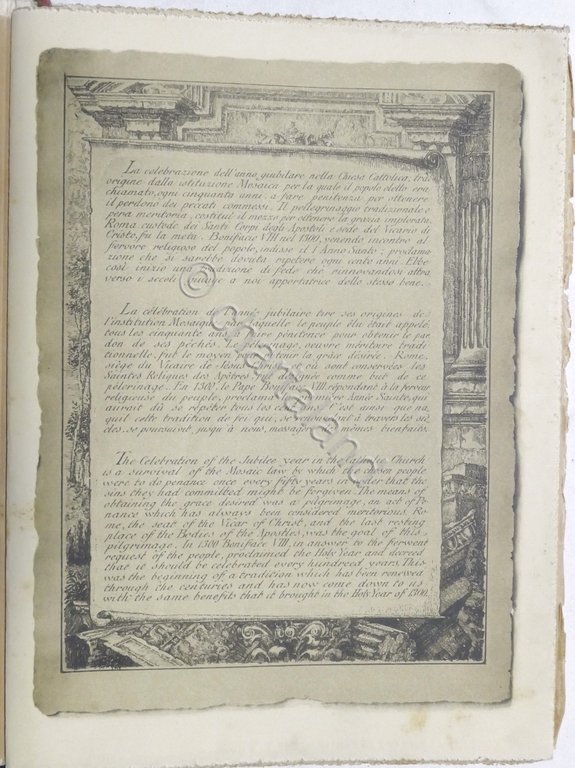 La celebrazione dell'anno giubilare nella Chiesa Cattolica, trae
origine dalla istituzione Mosaica per la quale il popolo eletto era
chiamato, ogni cinquanta anni, a fare penitenza per ottenere
il perdono dei peccati commessi. Il pellegrinaggio tradizionale o
pera meritoria, costituì il mezzo per ottenere la grazia implorata,
Roma custode dei Santi Corpi degli Apostoli e sede del Vicario di
Cristo, fu la meta. Bonifacio VIII nel 1300, venendo incontro al
fervore religioso del popolo, indisse il I Anno Santo; proclama
zione che si sarebbe dovuta ripetere ogni cento anni. Ebbe
così inizio una tradizione di fede che rinnovandosi attra
verso i secoli giunge a noi apportatrice dello stesso bene.
La célébration de l'année jubilaire tire ses origines de
l'institution Mosaïque par laquelle le peuple élu était appelé
tous les cinquante ans à faire pénitence pour obtenir le par
don de ses péchés. Le pèlerinage, oeuvre méritoire tradi
tionnelle, fut le moyen d'obtenir la grâce désirée. Rome,
siège du Vicaire de Jésus Christ où sont conservées les
Saintes Reliques des Apôtres, fut désignée comme but de ce
pèlerinage. En 1300, le Pape Boniface VIII, répondant à la ferveur
religieuse du peuple, proclama la première Année Sainte, qui
aurait dû se répéter tous les cent ans. C'est ainsi que na,
quit cette tradition de foi qui, se renouvelant à travers les siè,
cles, se poursuivit jusqu'à nous, messagère des mêmes bienfaits.
The Celebration of the Jubilee year in the Catholic Church
is a survival of the Mosaic law by which the chosen people
were to do penance once every fifty years in order that the
sins they had committed might be forgiven. The means of
obtaining the grace desired was a pilgrimage, an act of Pe
nance which has always been considered meritorious. Ro
me, the seat of the Vicar of Christ, and the last resting
place of the Bodies of the Apostles, was the goal of this
pilgrimage. In 1300 Boniface VIII, in answer to the fervent
request of the people, proclaimed the Holy Year and decreed
that it should be celebrated every hundred years. This
was the beginning of a tradition which has been renewed
through the centuries and has now come down to us
with the same benefits that it brought in the Holy Year of 1300.